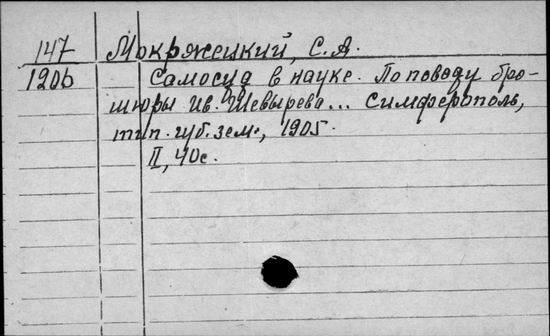 147 Мокржецкий, С.А.
1906 Самосуд в науке. По поводу бро-
шюры Ив. Шевырева... Симферополь,
тип. губ. зем., 1905.
II, 40с.